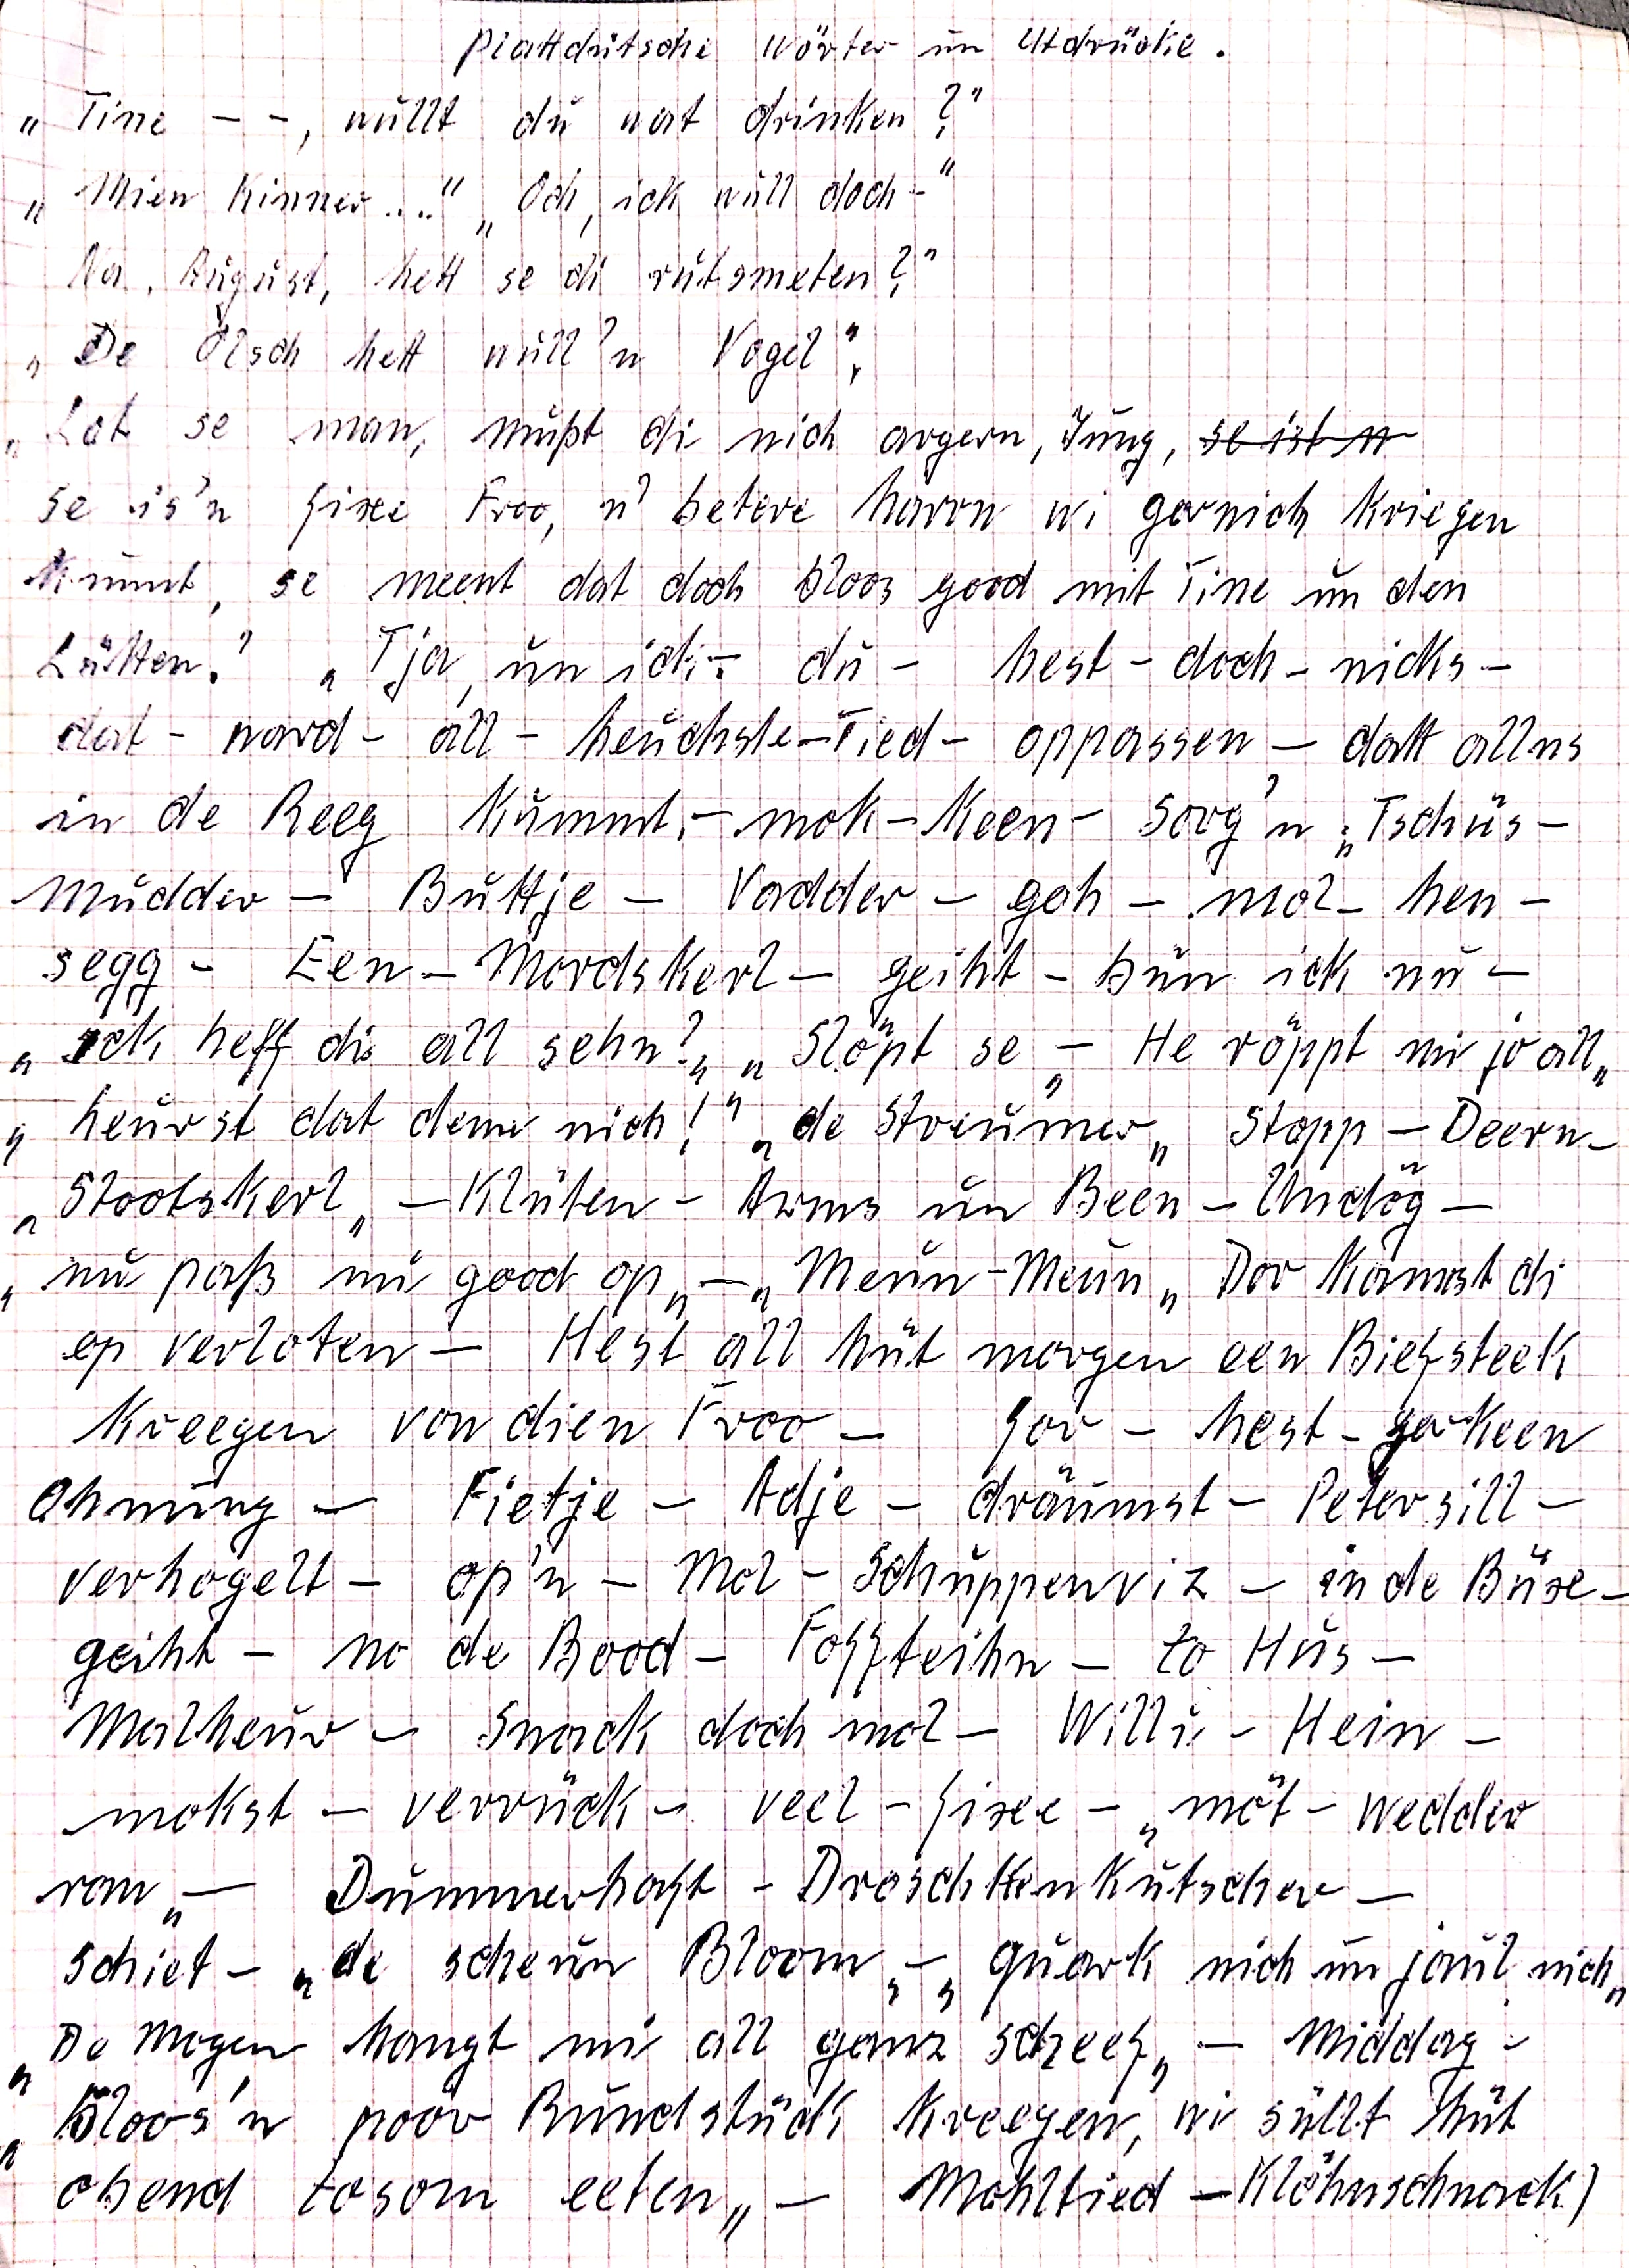 Plattdütsche Wörter un Utdrücke.
"Tine - -, wullt du wat drinken?"
"Mien Kinner...." "Och, ick wull doch-"
Na, August, hett se di rutsmeten?"
"De Ölsch hett wull'n Vogel",
"Lat se man, mußt di nich argern, Jung, se ist n
se is'n fixe Froo, n' betere harrn wi garnich kriegen
kunnt, se meent dat doch bloos good mit Tine un den
Lütten." "Tja, un ick - du - hest - doch - nicks -
dat - ward - all - heuchste-Tied - oppassen - datt allns
in de Reeg kummt. - mok - keen - Sorg'n "Tschüs -
Mudder - Buttje - Vadder - goh - mol - hen -
segg - Een - Mordskerl - geiht - bün ick nu -
"Ick heff di all sehn?" "Slöpt se" - He röppt mi jo all"
"heurst dat denn nich!" "de Streuner" Stopp - Deern -
"Stootskerl" - Klüten - Arms un Been - Undög -
"nu paß mi good op" - "Meun-Meun" Dor kannst di
op verloten - Hest all hüt morgen een Biefsteek
kreegen von dien Froo - för - hest - gor keen
Ohnung - Fietje - Adje - dräumst - Petersill -
verhogelt - op'n - Mol - Schuppenviz - in de Büxe -
geiht - no de Bood - Foffteihn - to Hus -
Malheur - Snack doch mol - Willi - Hein -
mokst - verrück - veel - fixe - "möt - wedder
ran" - Dummerhaft - Droschkenkutscher -
schiet - "de scheun Bloom" - "quark nich un jaul nich"
"De Mogen hangt mi all ganz scheef" - Middag -
"bloos'n poor Rundstück kreegen, wi süllt hüt
obend tosom eeten" - Mohltied - Klöhnschnack)